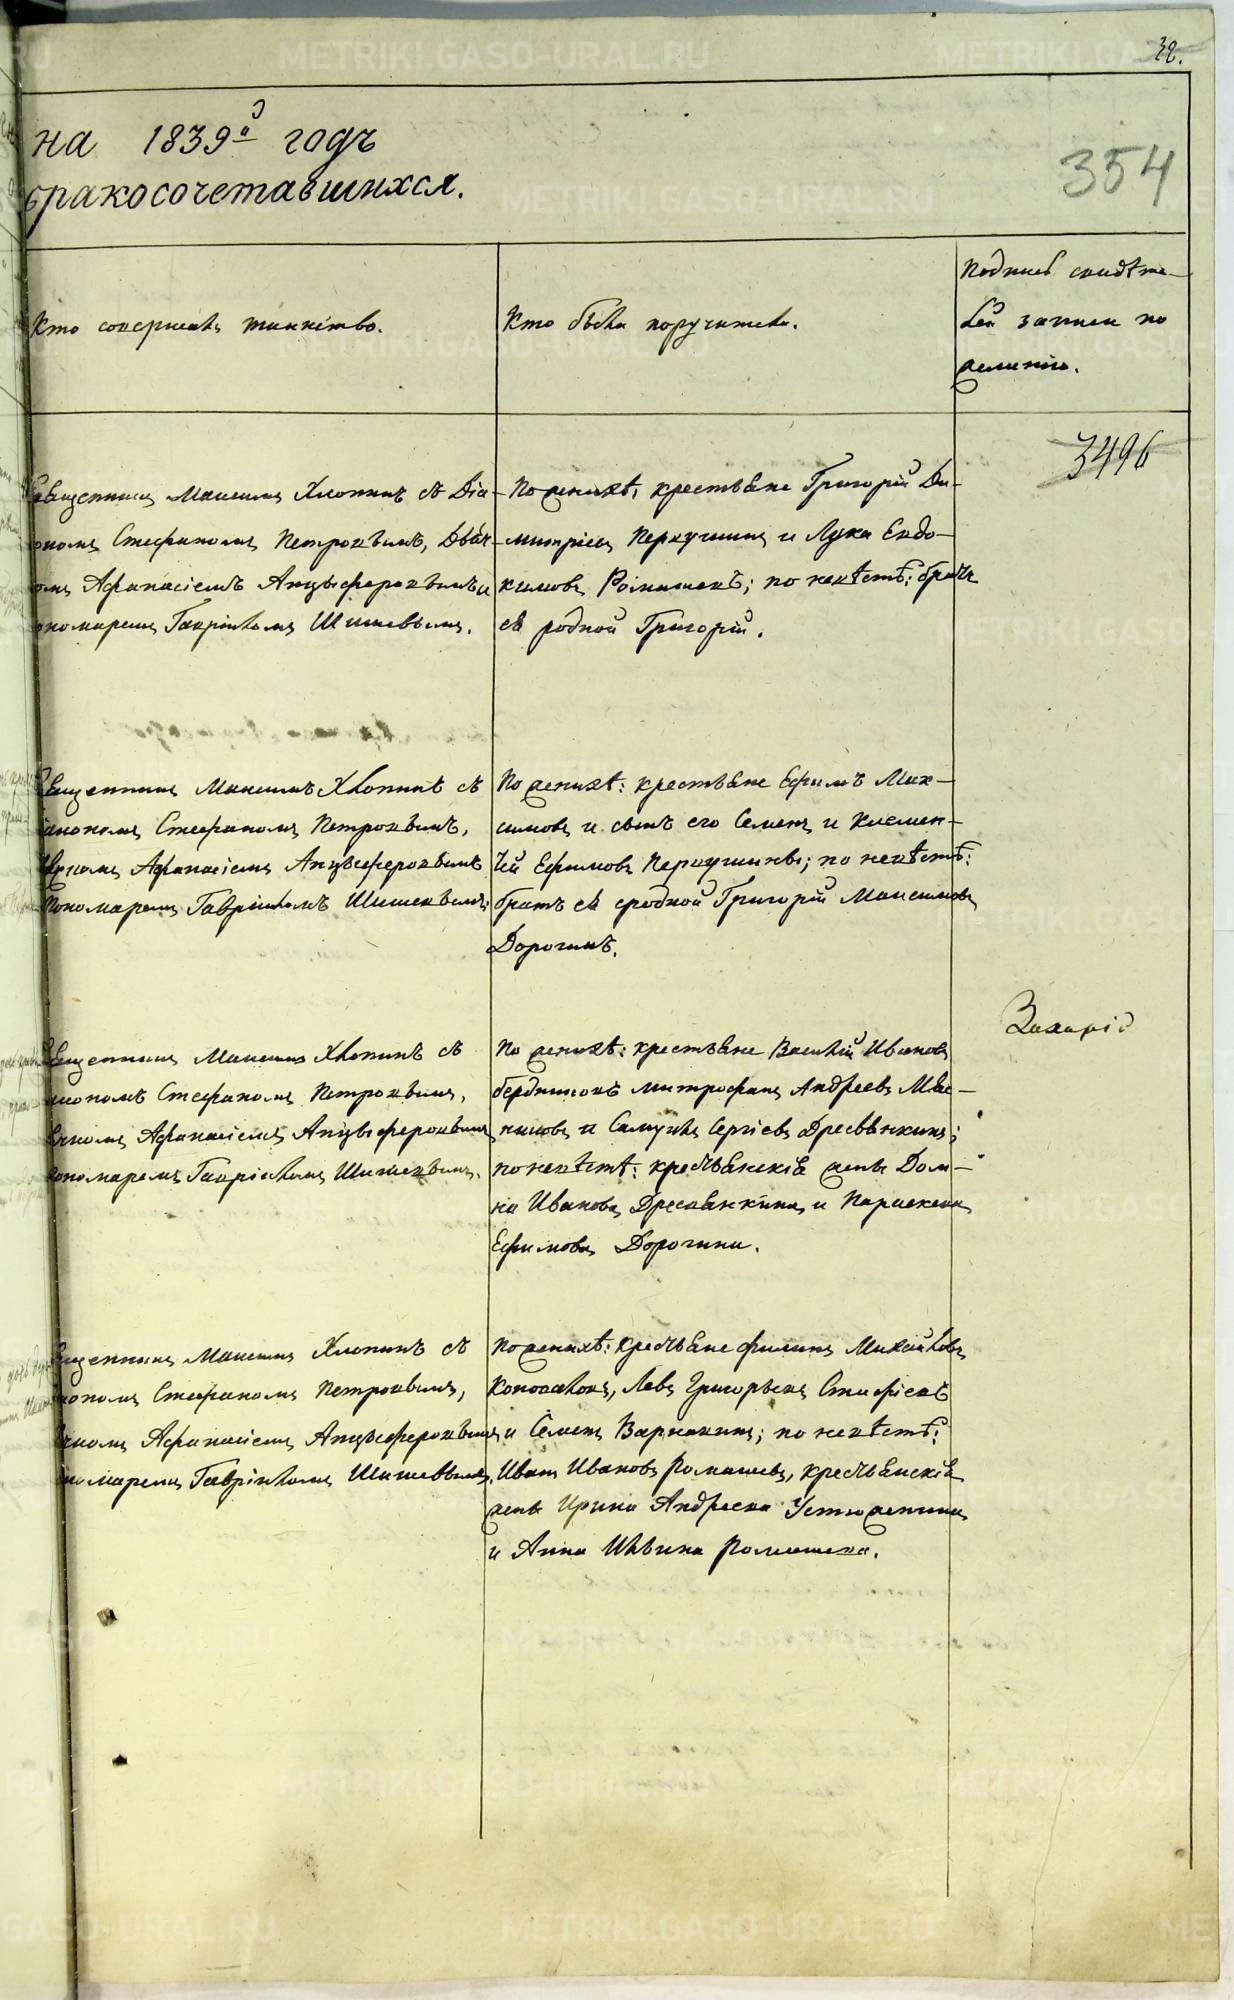 32.
на 1839й годъ
бракосочетавшихся.
354
Кто совершалъ таинство.
Кто были поручители.
Подпись свидѣте-
лей записи по
желанію.
3496
Священникъ Максимъ Хлопинъ съ Діа-
кономъ Стефаномъ Петровымъ, Дьяч-
комъ Афанасіемъ Анцыферовымъ и
пономаремъ Гавріиломъ Шишевымъ.
По женихѣ: крестьяне Григорій Ди-
митріевъ Первушинъ и Лука Евдо-
кимовъ Ромашевъ; по невѣстѣ: братъ
ея родной Григорій.
Священникъ Максимъ Хлопинъ съ
Діакономъ Стефаномъ Петровымъ,
Дьячкомъ Афанасіемъ Анцыферовымъ
Пономаремъ Гавріиломъ Шишевымъ.
По женихѣ: крестьяне Ефимъ Мак-
симовъ и сынъ его Семенъ и Клемен-
тій Ефимовъ Первушины; по невѣстѣ:
братъ ея сродной Григорій Максимовъ
Дорогинъ.
Захарій
Священникъ Максимъ Хлопинъ съ
Діакономъ Стефаномъ Петровымъ,
Дьячкомъ Афанасіемъ Анцыферовымъ
Пономаремъ Гавріиломъ Шишевымъ.
По женихѣ: крестьяне Василій Ивановъ
Бердниковъ Митрофанъ Андреевъ Мяс-
никовъ и Самуилъ Сергіевъ Дресвянкинъ;
по невѣстѣ: крестьянскія жены Дом-
на Иванова Дресвянкина и Параскева
Ефимова Дорогина.
Священникъ Максимъ Хлопинъ съ
Діакономъ Стефаномъ Петровымъ,
Дьячкомъ Афанасіемъ Анцыферовымъ
Пономаремъ Гавріиломъ Шишевымъ.
По женихѣ: крестьяне Филипъ Михайловъ
Коноваловъ, Левъ Григорьевъ
и Семенъ Варнакинъ; по невѣстѣ:
Иванъ Ивановъ Ромашевъ, крестьянскія
жены Ирина Андреева Устюжанина
и Анна Ильина Ромашева.
METRIKI.GASO-URAL.RU